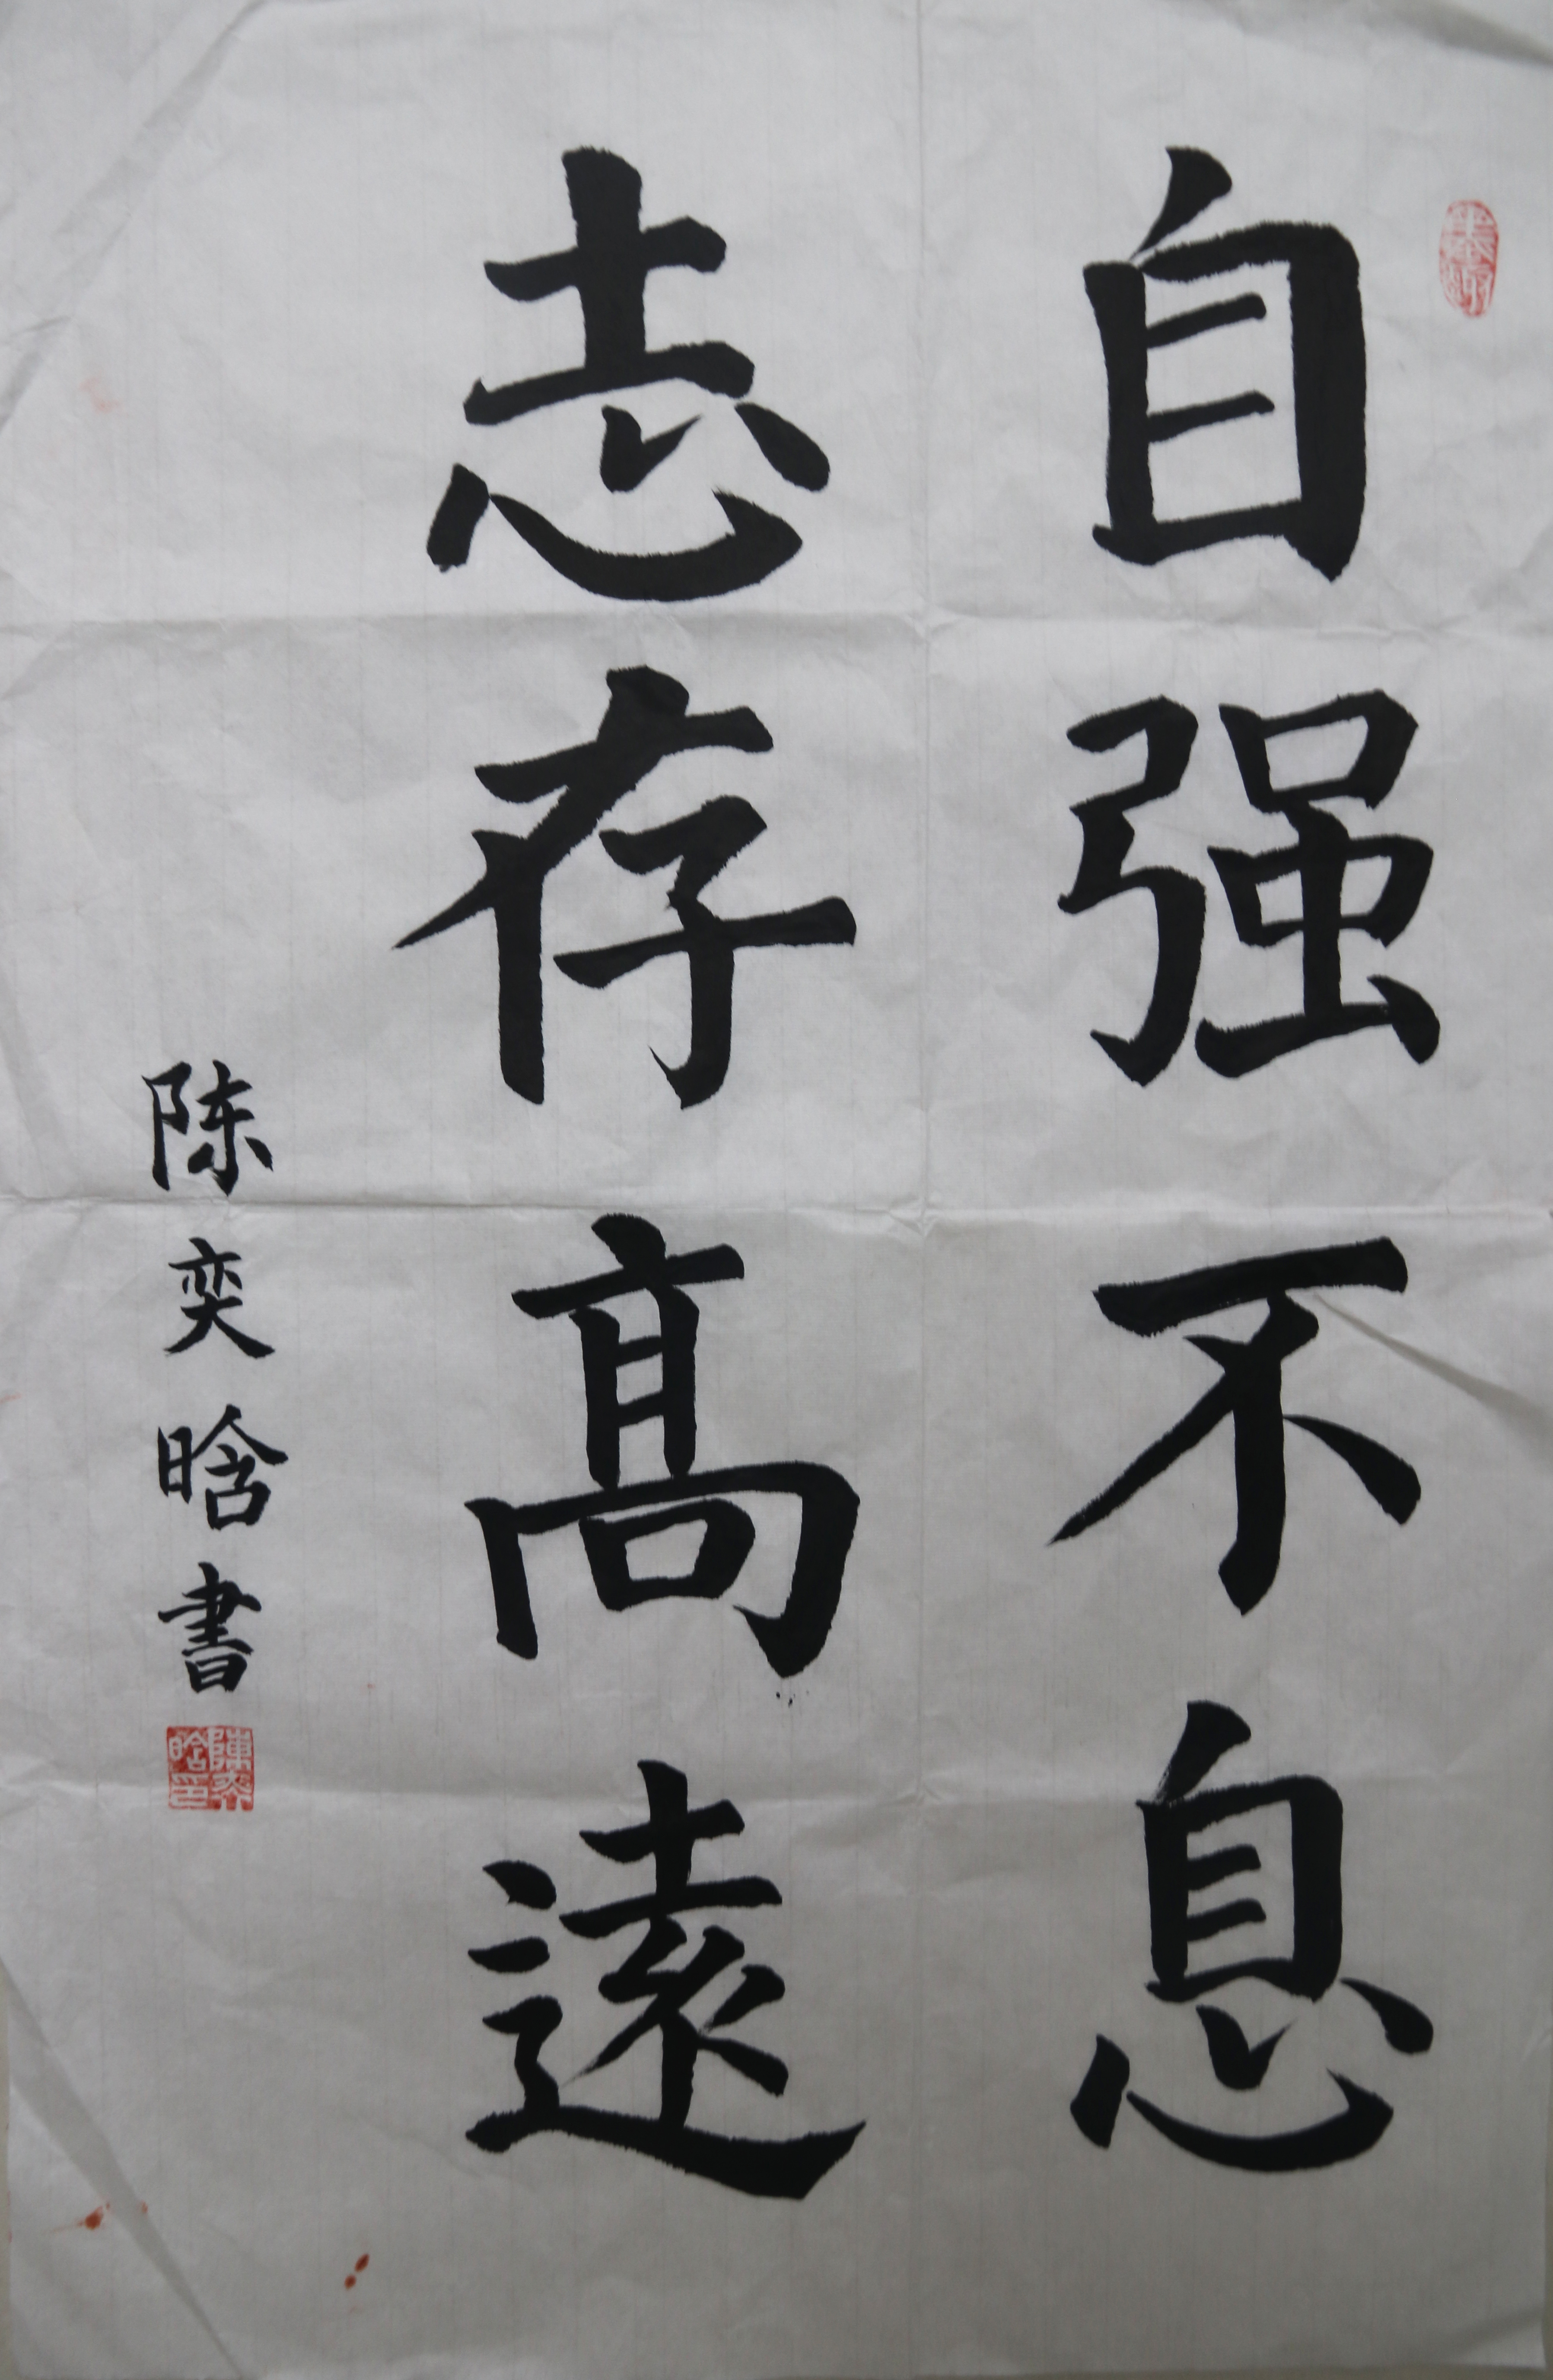 自强不息
志存髙遠
陈奕晗書
陳奕晗印